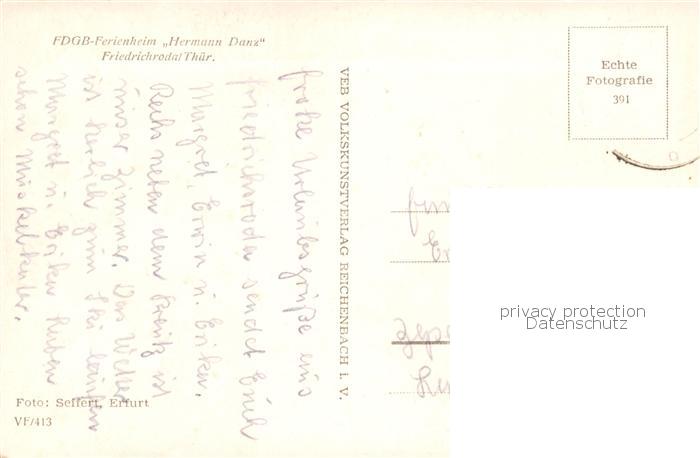 FDGB-Ferienheim „Hermann Danz“
Friedrichroda/Thür.
Frohe Urlaubsgrüße aus
Friedrichroda sendet Euch
Margret, Erwin u. Erika.
Rechts neben dem Kreutz ist
unser Zimmer. Das Wetter
ist herlich zum Ski laufen
Margret u. Erika haben
schon Muskelkater.
Foto: Seifert, Erfurt
VF/413
VEB VOLKSKUNSTVERLAG REICHENBACH i. V.
Echte
Fotografie
391
privacy protection
Datenschutz